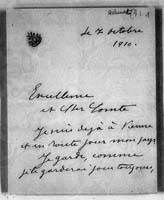 le 7 octobre
1910.
Excellence
et Cher Comte
Je suis déjà à Vienne
et en route pour mon pays
Je garde comme
je garderai pour toujours,